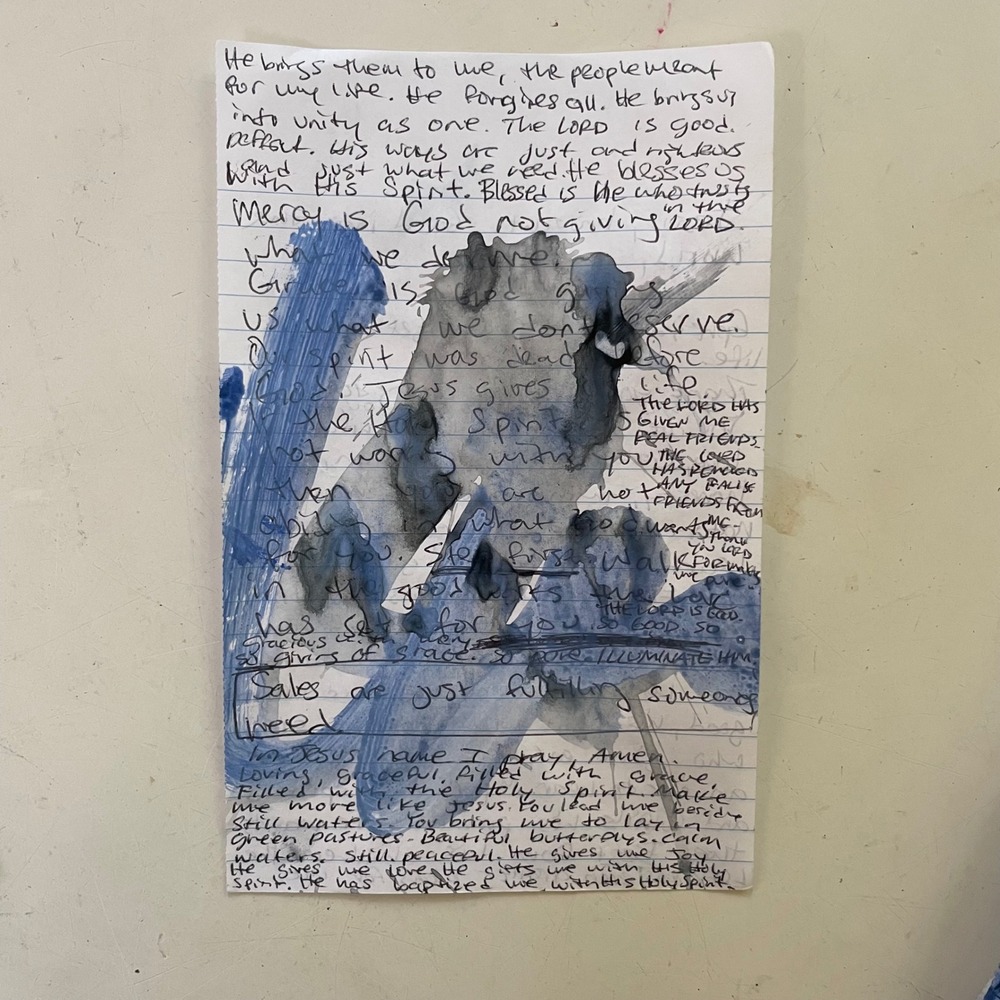 He brings them to me, the people meant
for my life. He forgives all. He brings us
into unity as one. The LORD is good.
Perfect. His ways are just and righteous
and just what we need. He blesses us
with His Spirit. Blessed is He who trusts
in the
Mercy is God not giving LORD.
what we deserve.
Grace is God giving
us what we don't deserve.
Our spirit was dead before
God. Jesus gives life
If the Holy Spirit is
not working with you
then you are not
in what God wants
for you. Step first walk
in the good works the
has set for you.
THE LORD HAS
GIVEN ME
REAL FRIENDS.
THE LORD
HAS REMOVED
ANY FALSE
FRIENDS FROM
ME.
Thank
YOU LORD
FOR
me
THE LORD IS GOOD.
SO GOOD. SO
gracious
so giving of grace. so ILLUMINATE HIM.
Sales are just fulfilling someones
need.
In Jesus name I pray, Amen.
Loving, graceful, filled with grace.
Filled with the Holy Spirit. Make
me more like Jesus. You lead me beside
still waters. You bring me to lay in
green pastures. Beautiful butterflys. calm
waters. Still, peaceful. He gives me Joy.
He gives me love. He gifts me with His Holy
Spirit. He has baptized me with His Holy Spirit.